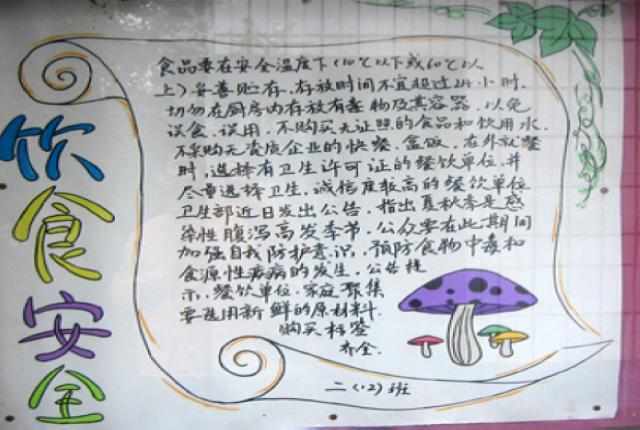 饮食安全
食品要在安全温度下(10℃以下或60℃以
上)妥善贮存,存放时间不宜超过24小时.
切勿在厨房内存放有毒物及其容器.以免
误食、误用.不购买无证照的食品和饮用水.
不采购无资质企业的快餐、盒饭,在外就餐
时,选择有卫生许可证的餐饮单位,并
尽量选择卫生,诚信度较高的餐饮单位
卫生部近日发出公告,指出夏秋季是感
染性腹泻高发季节,公众要在此期间
加强自我防护意识,预防食物中毒和
食源性疾病的发生,公告提
示,餐饮单位、家庭聚集
要选用新鲜的原材料.
购买标签
齐全.
二(12)班